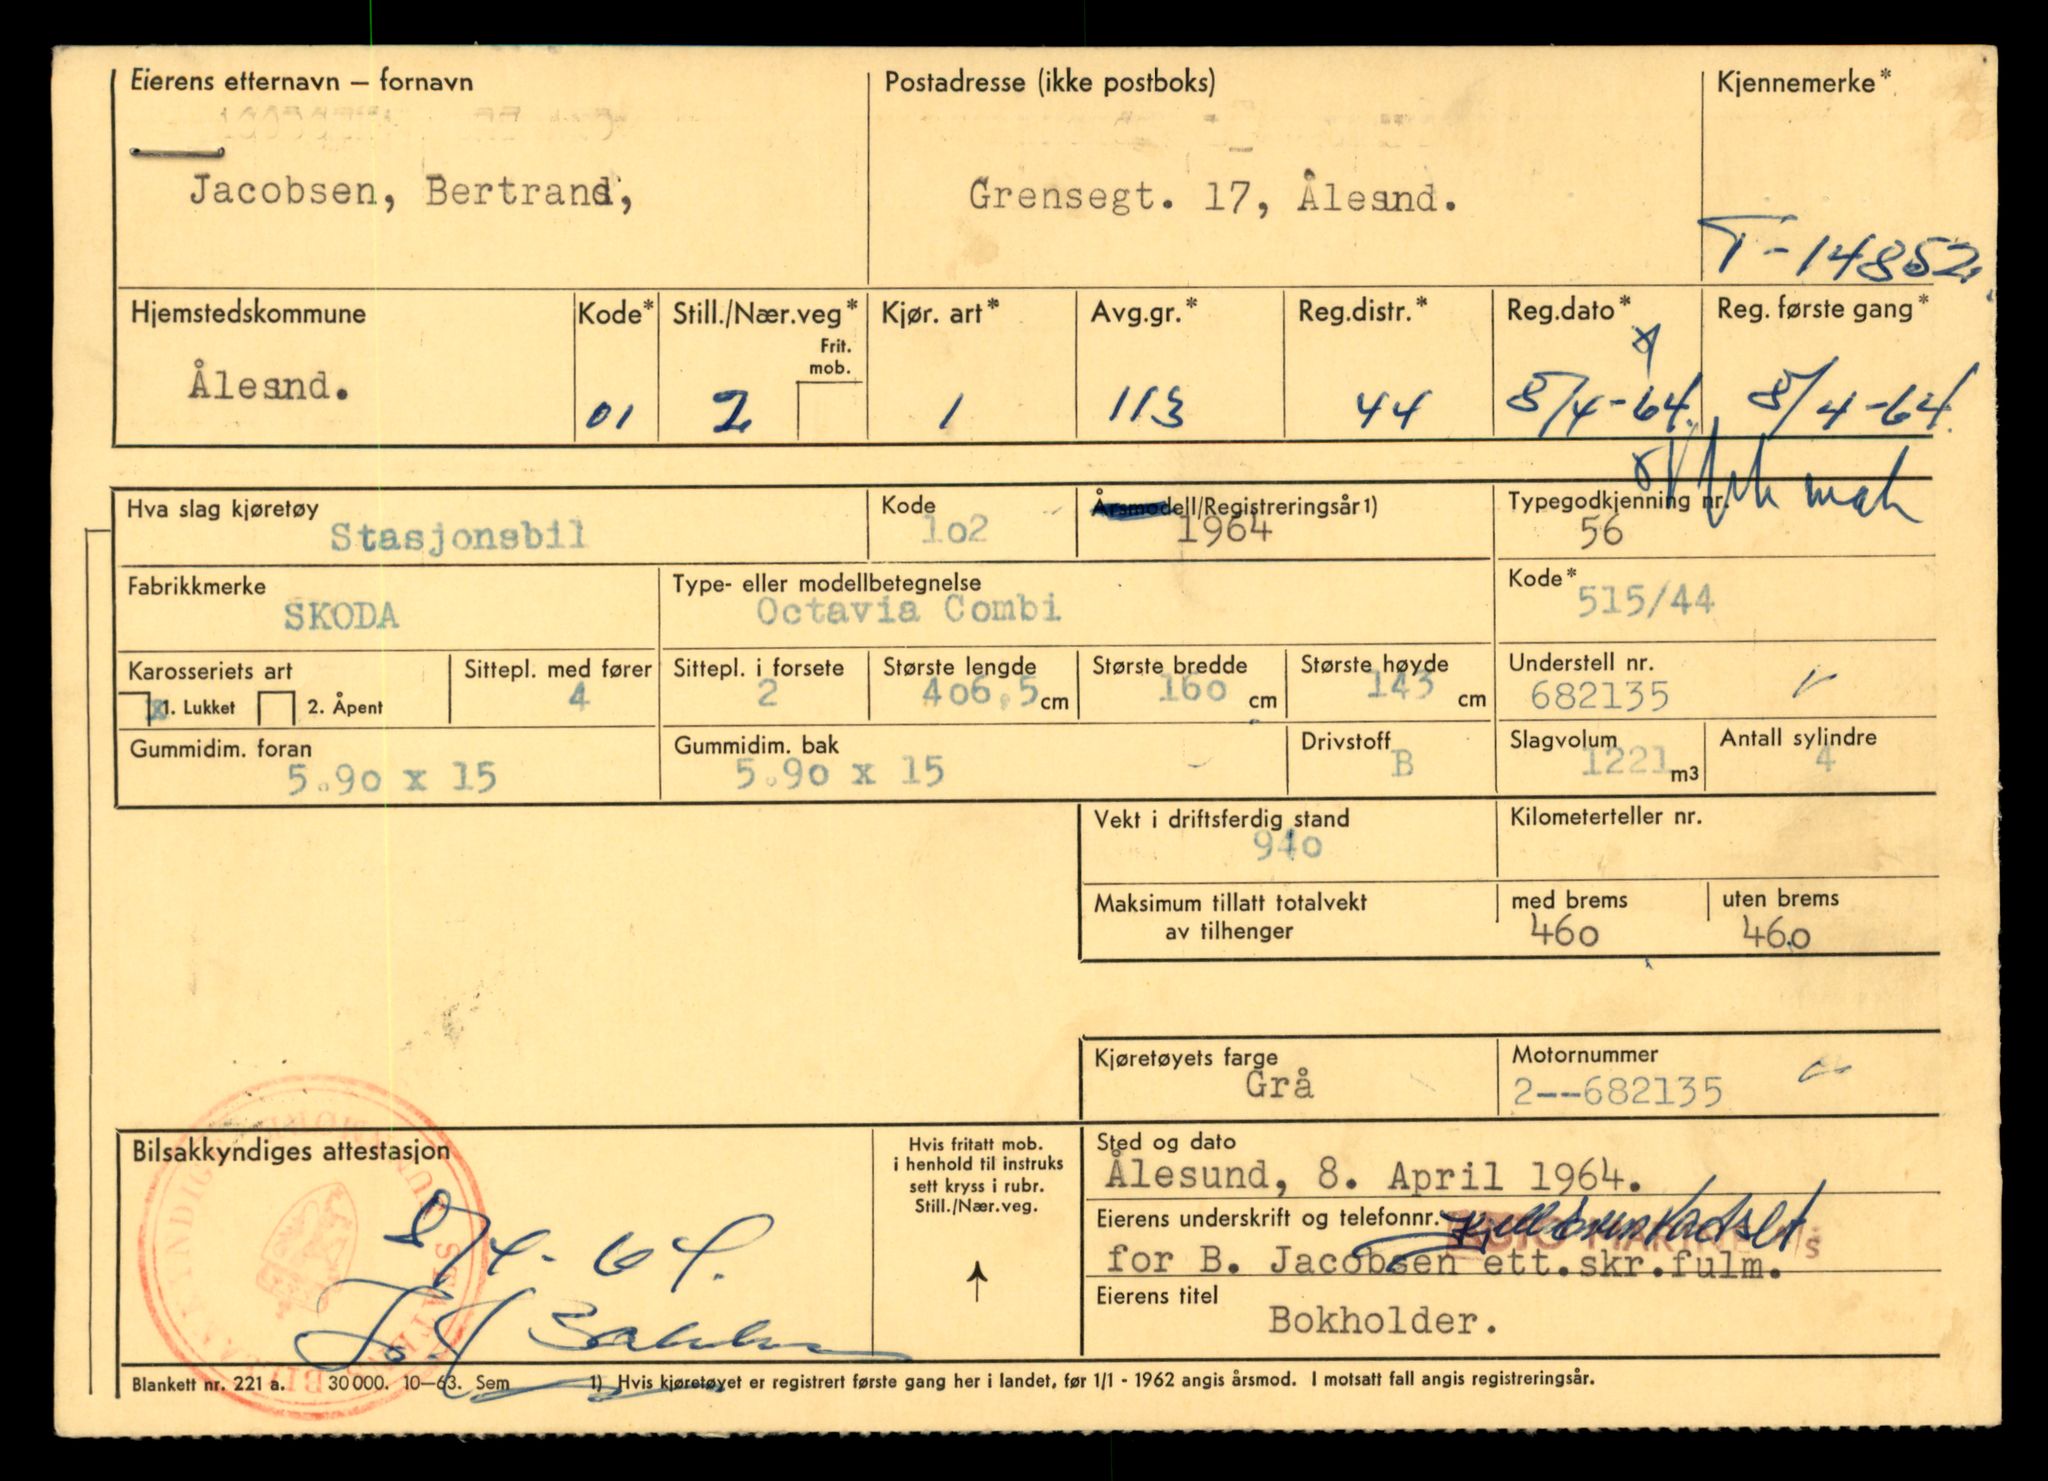 Eierens etternavn — fornavn
Jacobsen, Bertrand,
Postadresse (ikke postboks)
Grensegt. 17, Ålesund.
Kjennemerke*
T-14852.
Hjemstedskommune
Ålesund.
Kode*
01
Still./Nær.veg*
Frit.
mob.
2
Kjør. art*
1
Avg.gr.*
113
Reg.distr.*
44
Reg.dato*
8/4-64.
Reg. første gang*
8/4-64.
Hva slag kjøretøy
Stasjonsbil
Kode
1o2
Årsmodell/Registreringsår1)
1964
Typegodkjenning nr.
56
Fabrikkmerke
SKODA
Type- eller modellbetegnelse
Octavia Combi
Kode*
515/44
Karosseriets art
x 1. Lukket 2. Åpent
Sittepl. med fører
4
Sittepl. i forsete
2
Største lengde
4o6,5 cm
Største bredde
16o cm
Største høyde
143 cm
Understell nr.
682135
Gummidim. foran
5.9o x 15
Gummidim. bak
5.9o x 15
Drivstoff
B
Slagvolum
1221 m3
Antall sylindre
4
Vekt i driftsferdig stand
94o
Kilometerteller nr.
Maksimum tillatt totalvekt
av tilhenger
med brems
46o
uten brems
46o
Kjøretøyets farge
Grå
Motornummer
2--682135
Bilsakkyndiges attestasjon
8/4-64.
Hvis fritatt mob.
i henhold til instruks
sett kryss i rubr.
Still./Nær.veg.
Sted og dato
Ålesund, 8. April 1964.
Eierens underskrift og telefonnr.
for B. Jacobsen ett.skr.fulm.
Eierens titel
Bokholder.
Blankett nr. 221 a. 30 000. 10—63. Sem
1) Hvis kjøretøyet er registrert første gang her i landet, før 1/1 - 1962 angis årsmod. I motsatt fall angis registreringsår.